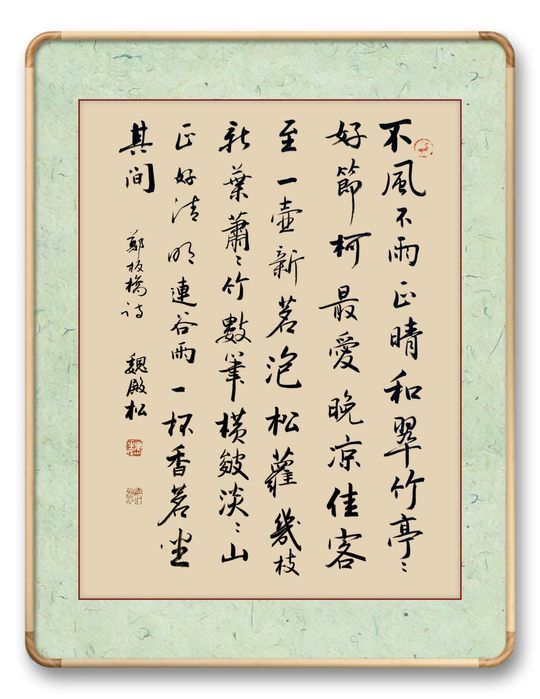 不風不雨正晴和翠竹亭〻
好節柯最愛晚凉佳客
至一壺新茗泡松蘿幾枝
新葉蕭〻竹數筆橫皴淡〻山
正好清明連谷雨一杯香茗坐
其间
鄭板橋诗 魏殿松